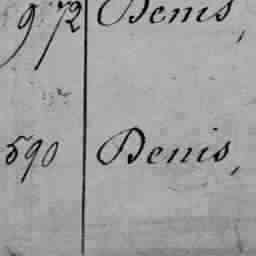 972 Denis,
590 Denis,